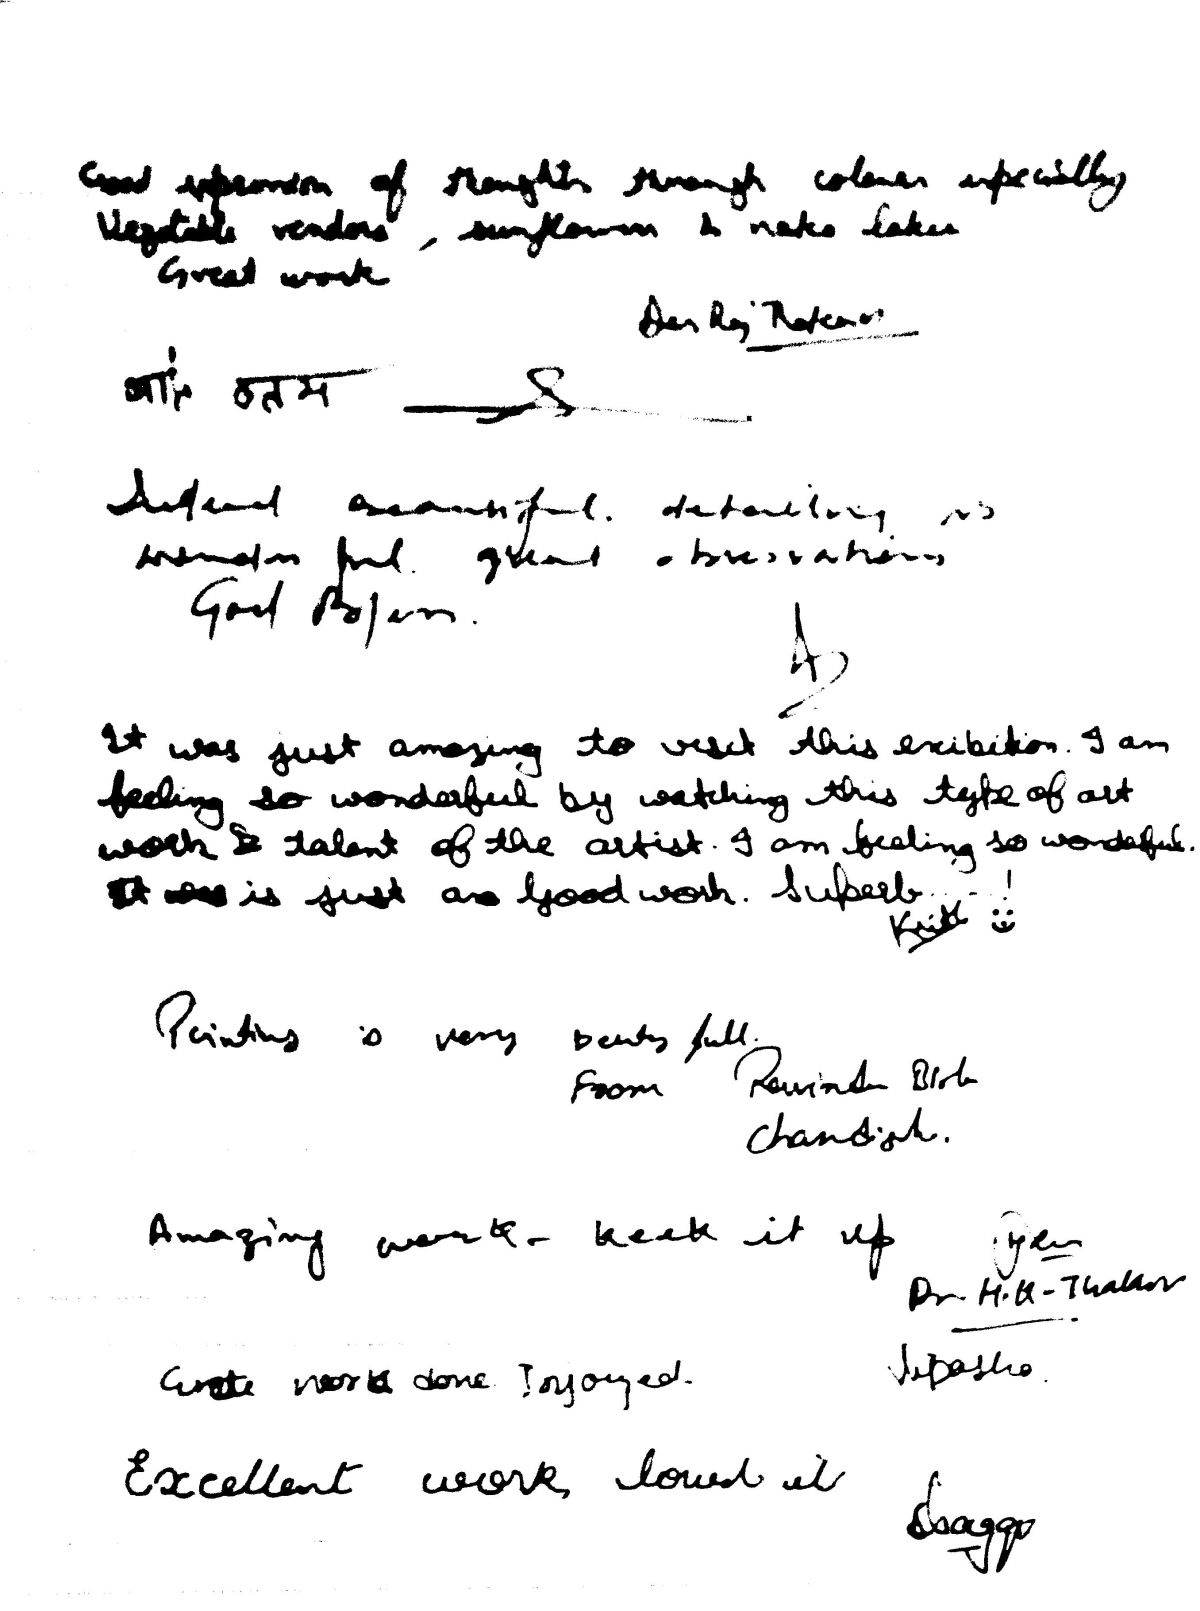 Good expression of thoughts through colours especially
Vegetable vendors, sunflowers & nako lake
Great work
Des Raj
अति उत्तम
Indeed beautiful. detailing is
wonderful. great observations
God
It was just amazing to visit this exibition. I am
feeling so wonderful by watching this type of art
work & talent of the artist. I am feeling so wonderful.
It is just a good work. Superb.....!
Painting is very beutyfull.
From
Amazing work - keek it up
Dr. H.K. Thakur
work done Injoyed.
Vipasha.
Excellent work, loved it